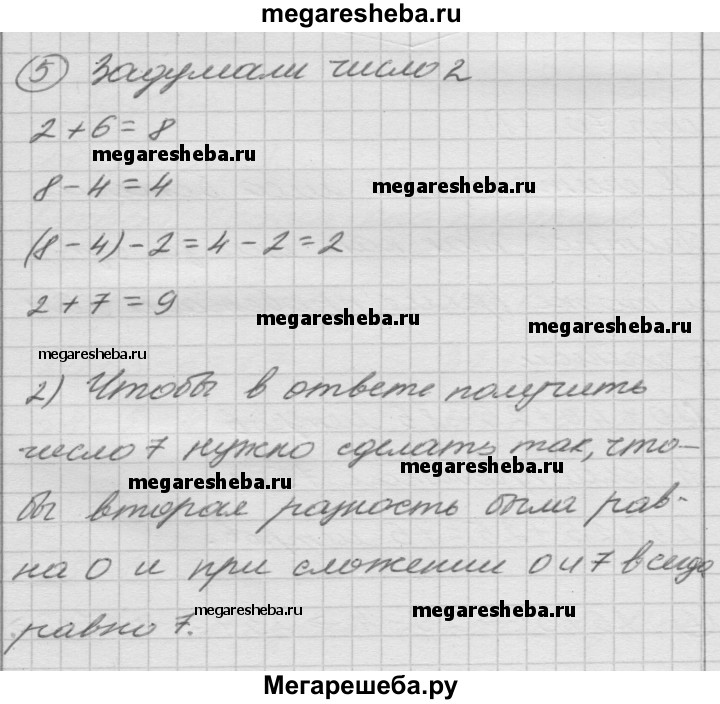 megaresheba.ru
5 Задумали число 2
2 + 6 = 8
megaresheba.ru
8 - 4 = 4
megaresheba.ru
(8 - 4) - 2 = 4 - 2 = 2
2 + 7 = 9
megaresheba.ru
megaresheba.ru
megaresheba.ru
2) Чтобы в ответе получить
число 7 нужно сделать так, что-
megaresheba.ru
megaresheba.ru
бы вторая разность была рав-
на 0 и при сложении 0 и 7 всегда
megaresheba.ru
megaresheba.ru
равно 7.
Мегарешеба.ру